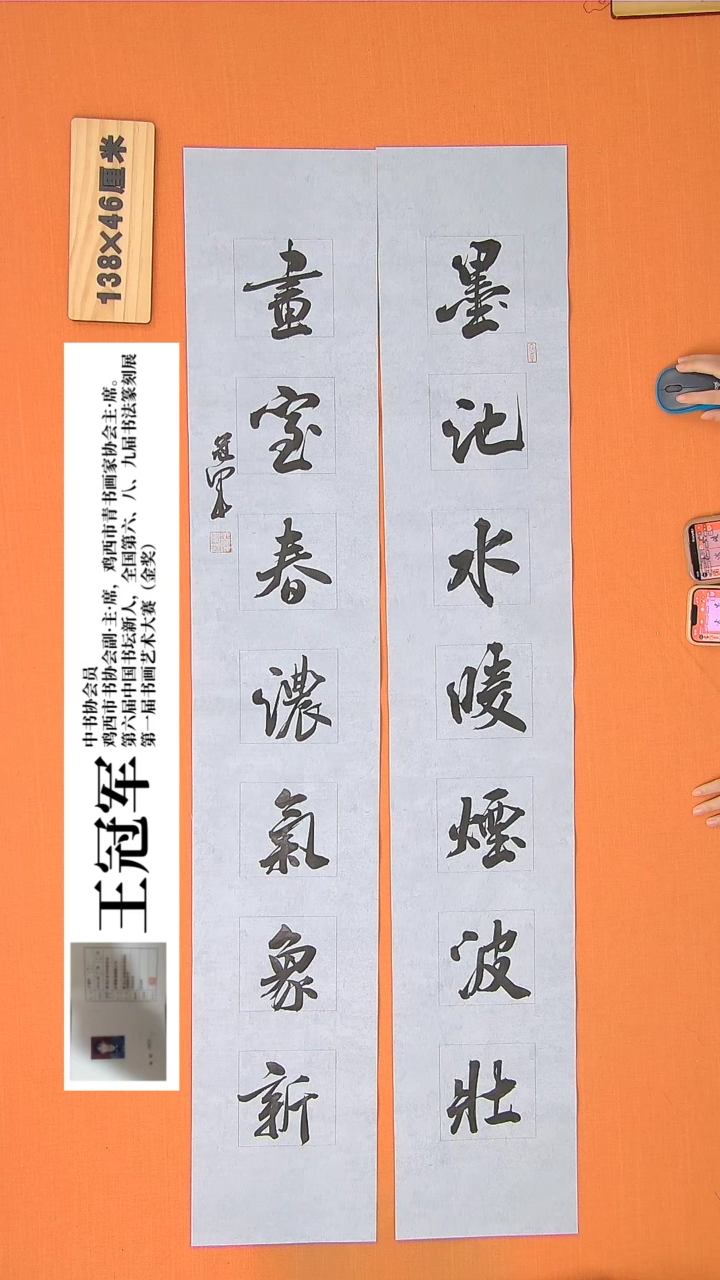 墨池水暖煙波壯
畫室春濃氣象新
冠軍
138×46厘米
王冠军
中书协会员
鸡西市书协会副·主·席，鸡西市青书画家协会主·席。
第六届中国书坛新人，全国第六、八、九届书法篆刻展
第一届书画艺术大赛（金奖）